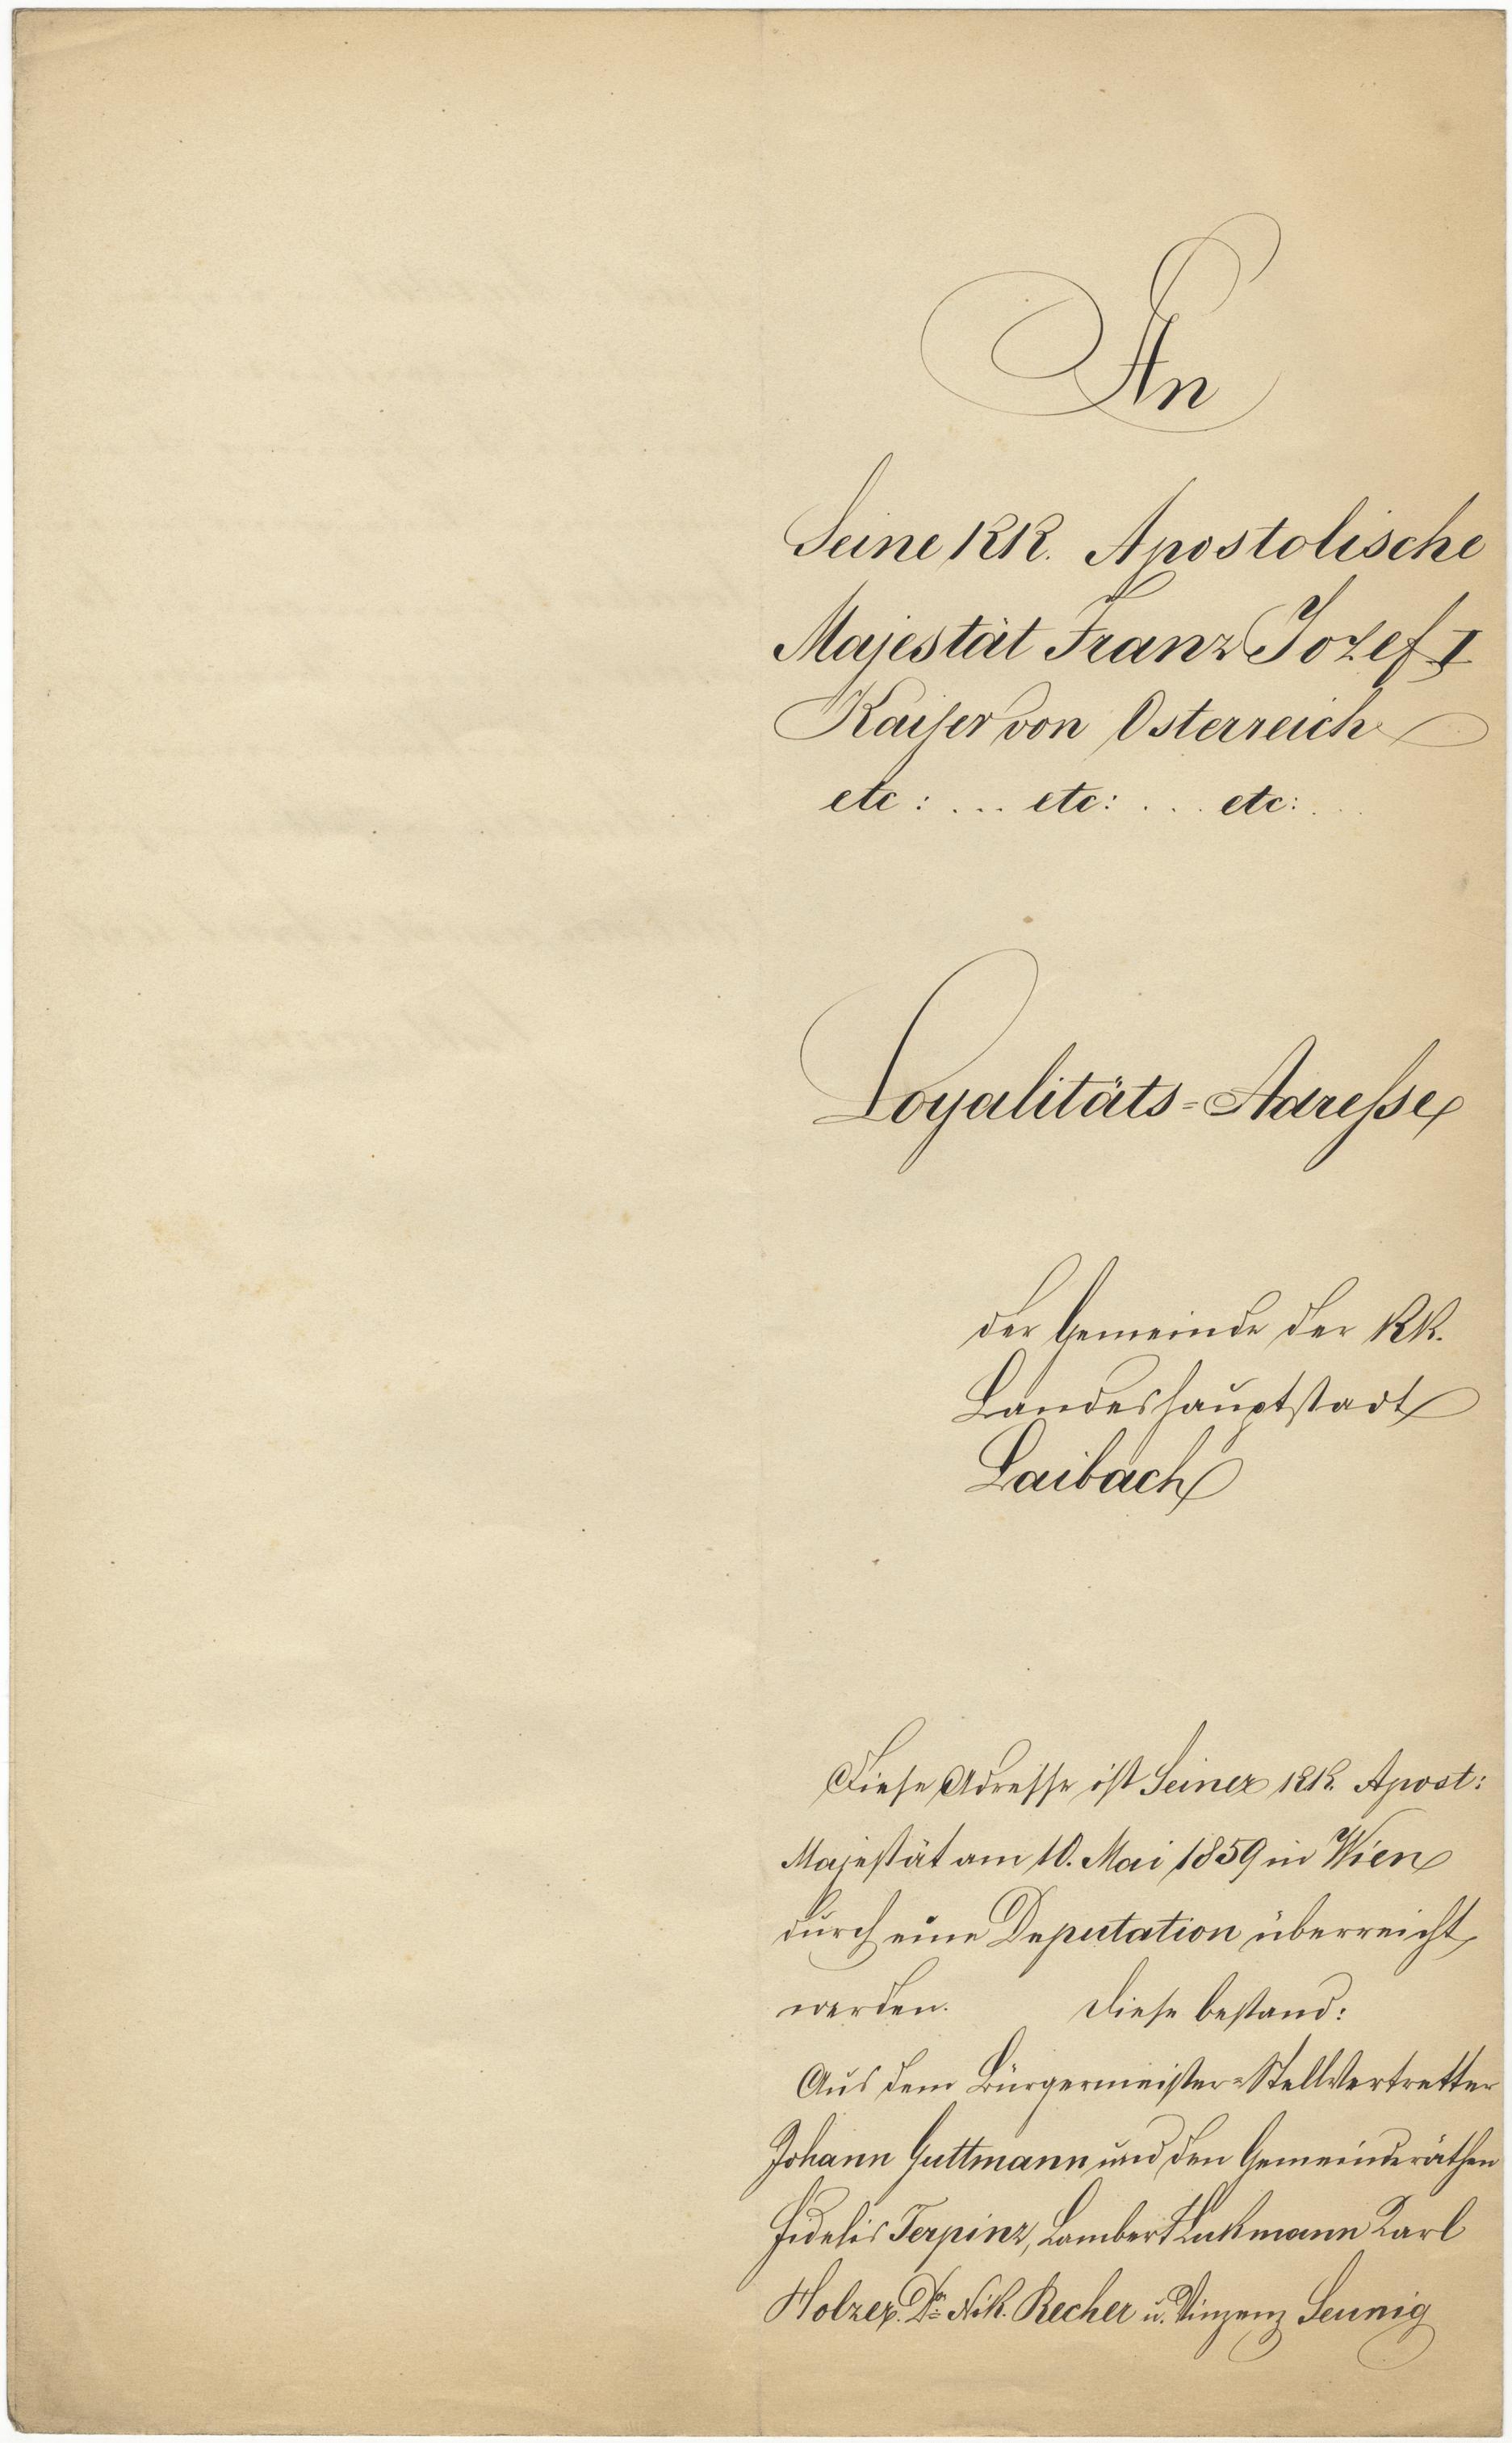 An
Seine KK. Apostolische
Majestät Franz Jozef I
Kaiser von Osterreich
etc: ... etc: ... etc: ...
Loyalitäts=Adresse
der Gemeinde der KK.
Landeshauptstadt
Laibach
Diese Adresse ist Seiner KK. Apost:
Majestät am 10. Mai 1859 in Wien
durch eine Deputation überreicht
werden. Diese bestand:
Aus dem Bürgermeister=Stellvertretter
Johann Guttmann und den Gemeinderäthen
Fidelis Terpinz, Lambert Luckmann Karl
Holzer. Dr. Nik. Recher u. Vinzenz Seunig